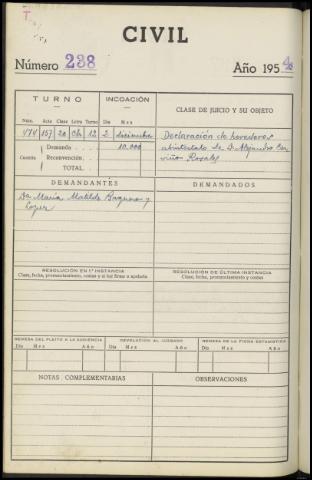 CIVIL
Número 238
Año 1954
TURNO INCOACIÓN CLASE DE JUICIO Y SU OBJETO
Núm. Acta Clase Letra Turno Día Mes
474 157 20 Ch 12 2 diciembre
Declaración de herederos
abintestato de D. Alejandro
Rosales
Cuantía Demanda 10.000
Reconvención
TOTAL
DEMANDANTES DEMANDADOS
Da María Matilde Baquero y
López
RESOLUCIÓN EN 1.ª INSTANCIA RESOLUCIÓN DE ÚLTIMA INSTANCIA
Clase, fecha, pronunciamiento, costas y si fué firme o apelada Clase, fecha, pronunciamiento y costas
REMESA DEL PLEITO A LA AUDIENCIA DEVOLUCIÓN AL JUZGADO REMESA DE LA FICHA ESTADÍSTICA
Día Mes Año Día Mes Año Día Mes Año
NOTAS COMPLEMENTARIAS OBSERVACIONES